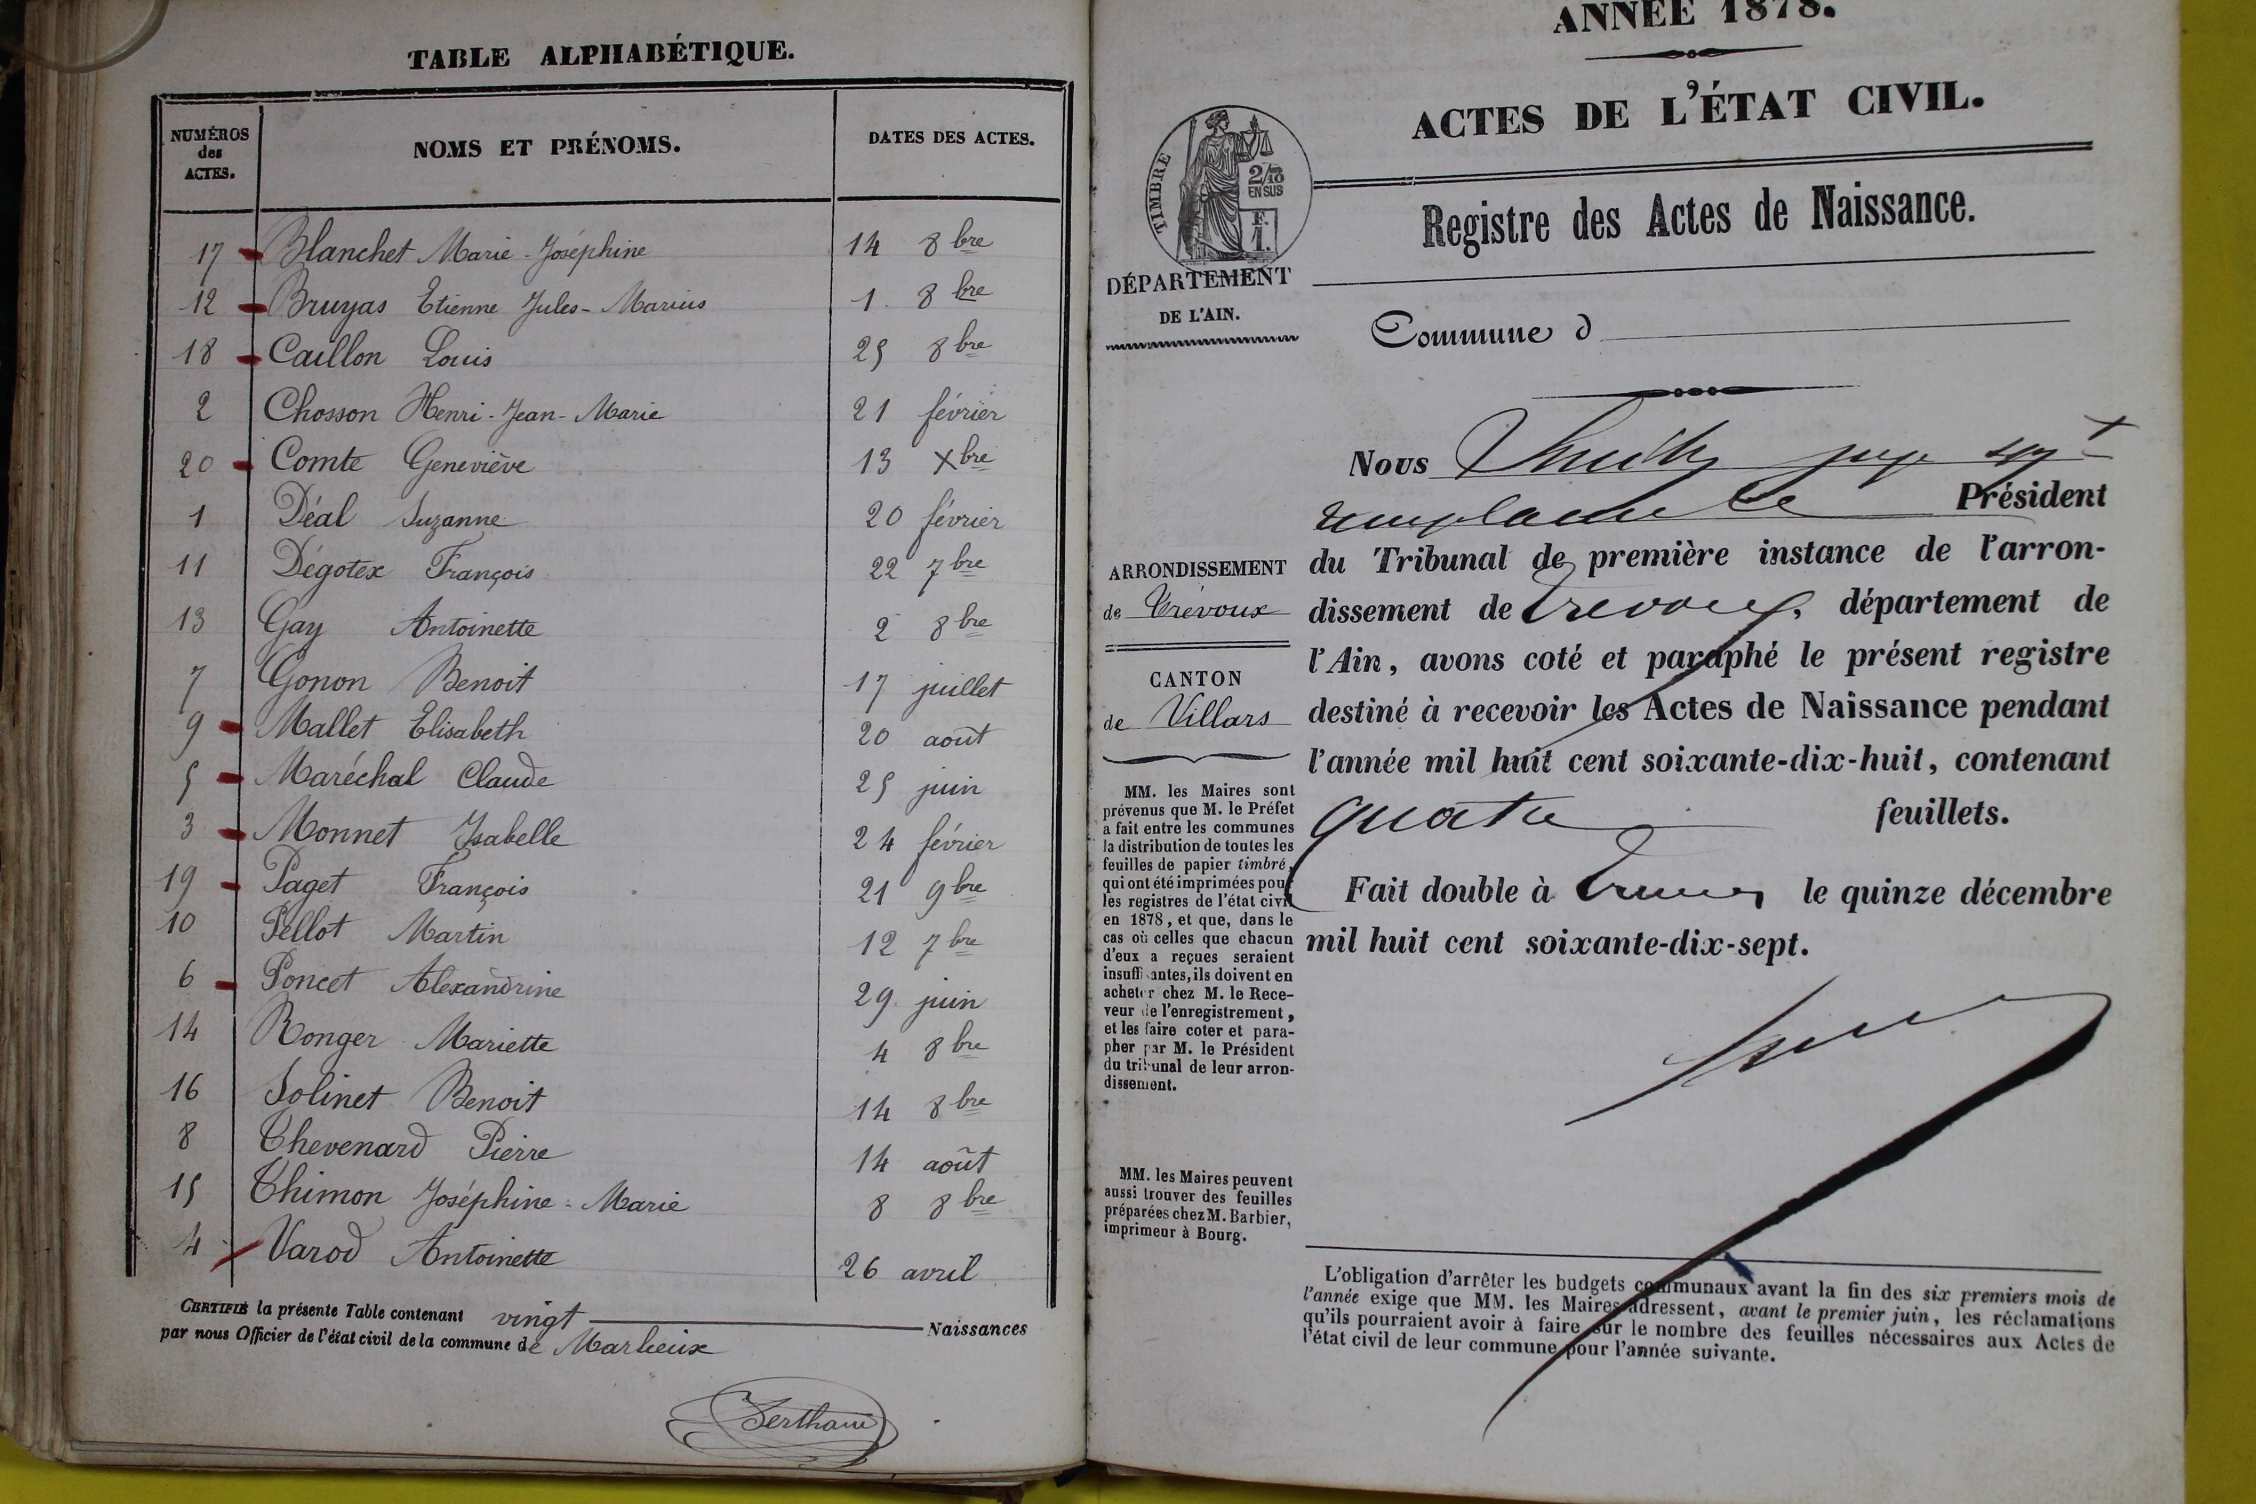 TABLE ALPHABÉTIQUE.
NUMÉROS des ACTES.
NOMS ET PRÉNOMS.
DATES DES ACTES.
17 Blanchet Marie-Joséphine 14 8bre
12 Bruyas Etienne Jules-Marius 1. 8bre
18 Caillon Louis 25 8bre
2 Chosson Henri-Jean-Marie 21 février
20 Comte Geneviève 13 Xbre
1 Déal Suzanne 20 février
11 Dégotex François 22 7bre
13 Gay Antoinette 2 8bre
7 Gonon Benoit 17 juillet
9 Mallet Elisabeth 20 août
5 Maréchal Claude 25 juin
3 Monnet Isabelle 24 février
19 Paget François 21 9bre
10 Pellot Martin 12 7bre
6 Poncet Alexandrine 29 juin
14 Ronger Mariette 4 8bre
16 Solinet Benoit 14 8bre
8 Thevenard Pierre 14 août
15 Thimon Joséphine-Marie 8 8bre
4 Varod Antoinette 26 avril
CERTIFIÉ la présente Table contenant vingt Naissances
par nous Officier de l'état civil de la commune de Marlieux
ANNÉE 1878.
ACTES DE L'ÉTAT CIVIL.
TIMBRE
2/10
EN SUS
F.
1.
DÉPARTEMENT
DE L'AIN.
Registre des Actes de Naissance.
Commune d
Nous
remplaçant le Président
du Tribunal de première instance de l'arron-
dissement de Trévoux, département de
l'Ain, avons coté et paraphé le présent registre
destiné à recevoir les Actes de Naissance pendant
l'année mil huit cent soixante-dix-huit, contenant
quatre feuillets.
Fait double à Trévoux le quinze décembre
mil huit cent soixante-dix-sept.
ARRONDISSEMENT
de Trévoux
CANTON
de Villars
MM. les Maires sont
prévenus que M. le Préfet
a fait entre les communes
la distribution de toutes les
feuilles de papier timbré,
qui ont été imprimées pour
les registres de l'état civil
en 1878, et que, dans le
cas où celles que chacun
d'eux a reçues seraient
insuffisantes, ils doivent en
acheter chez M. le Rece-
veur de l'enregistrement,
et les faire coter et para-
pher par M. le Président
du tribunal de leur arron-
dissement.
MM. les Maires peuvent
aussi trouver des feuilles
préparées chez M. Barbier,
imprimeur à Bourg.
L'obligation d'arrêter les budgets communaux avant la fin des six premiers mois de
l'année exige que MM. les Maires adressent, avant le premier juin, les réclamations
qu'ils pourraient avoir à faire sur le nombre des feuilles nécessaires aux Actes de
l'état civil de leur commune pour l'année suivante.